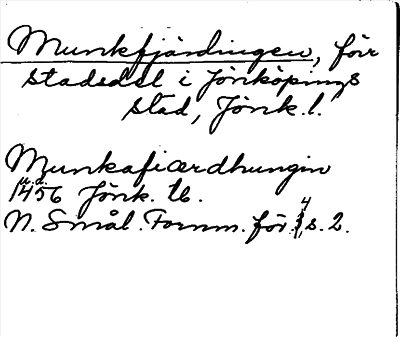 Munkfjärdingen, förr
stadsdel i Jönköpings
stad, Jönk. l.
Munkafiærdhungin
u.å.
1456 Jönk. tb.
N. Smål. Fornm. för. 4, s. 2.